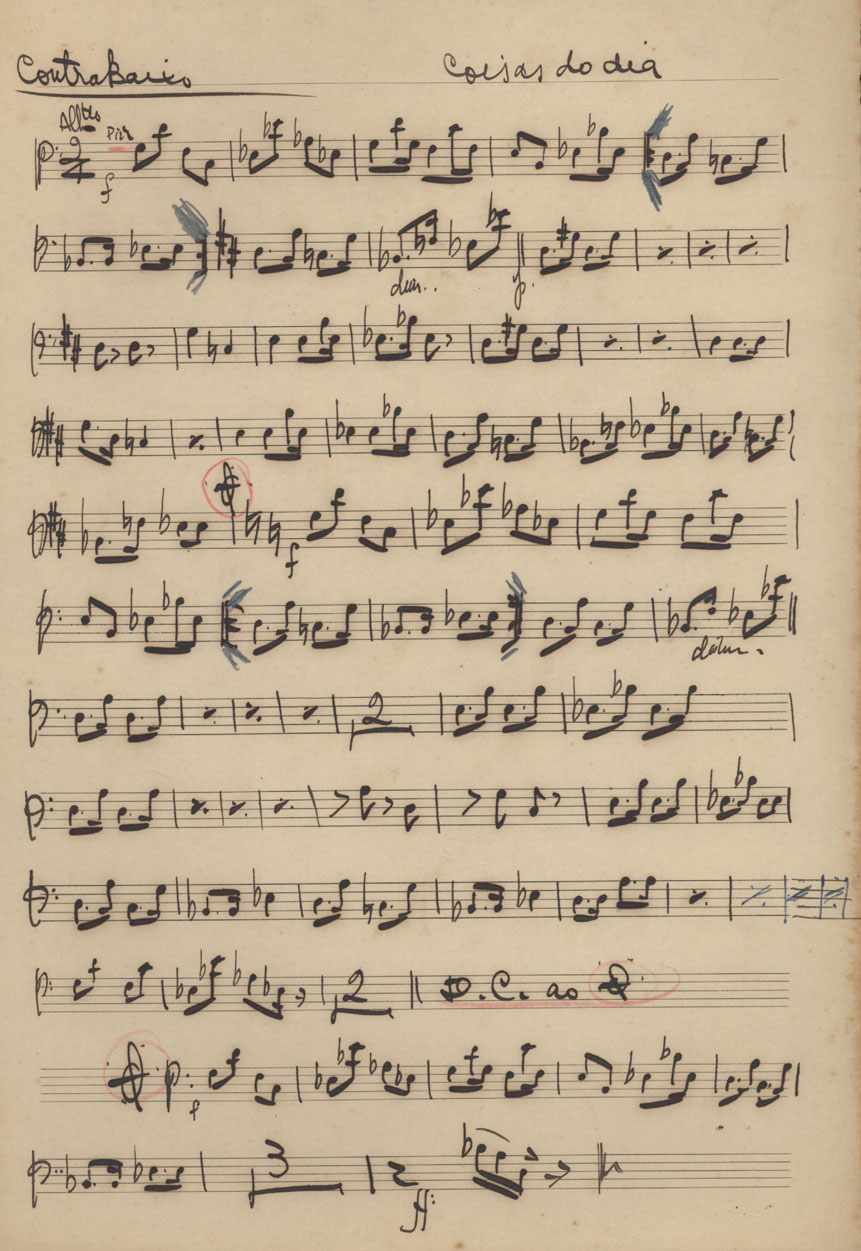 Contrabaixo Coisas do dia
All.tto Pizz
2/4
f
dim.. p.
f
dim.
2
2 D.C. ao
f
3 2
ff